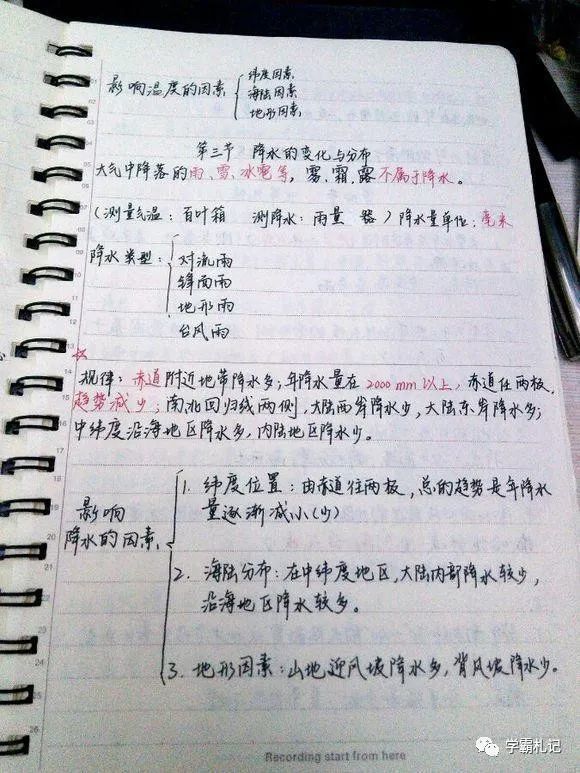 影响温度的因素
纬度因素
海陆因素
地形因素
第三节 降水的变化与分布
大气中降落的雨、雪、冰雹等,雾、霜、露不属于降水。
(测量气温:百叶箱 测降水:雨量 器)降水量单位:毫米
降水类型:
对流雨
锋面雨
地形雨
台风雨
☆
规律:赤道附近地带降水多;年降水量在2000mm以上,赤道往两极,
趋势减少;南北回归线两侧,大陆西岸降水少,大陆东岸降水多;
中纬度沿海地区降水多,内陆地区降水少。
影响
降水的因素
1. 纬度位置:由赤道往两极,总的趋势是年降水
量逐渐减小(少)
2. 海陆分布:在中纬度地区,大陆内部降水较少,
沿海地区降水较多。
3. 地形因素:山地迎风坡降水多,背风坡降水少。
Recording start from here
学霸札记